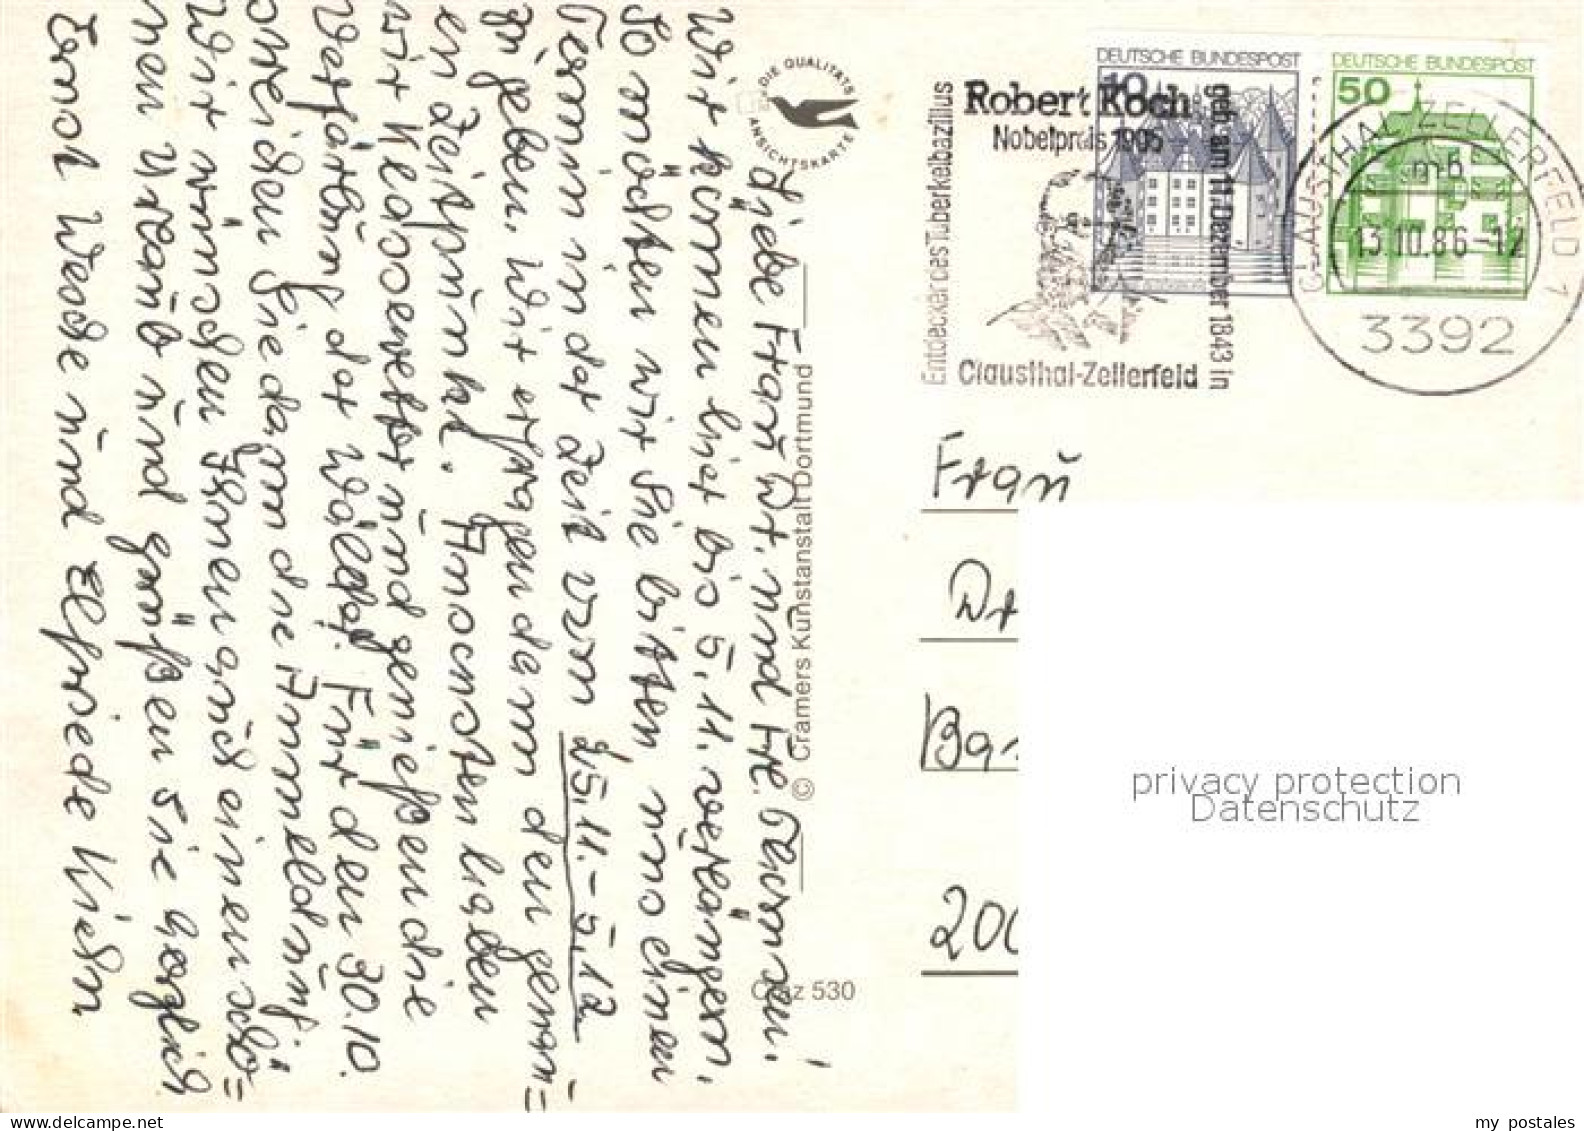 Liebe Frau Dr. und Frl.
Wir können hier bis 5.11. verlängern.
So möchten wir Sie bitten, uns einen
Termin in der Zeit vom 25.11. – 5.12.
zu geben. Wir erfragen dann den genau=
en Zeitpunkt. Ansonsten haben
wir und genießen die
der Für den 30.10.
Sie dann die Anmeldung.
Wir wünschen Ihnen auch einen schö=
nen Urlaub und grüßen Sie herzlich
und Elfriede
DIE QUALITÄTS
ANSICHTSKARTE
© Cramers Kunstanstalt Dortmund
530
DEUTSCHE BUNDESPOST
10
DEUTSCHE BUNDESPOST
50
Robert Koch
Nobelpreis 1905
Entdecker des Tuberkelbazillus
geb. am 11. Dezember 1843 in
Clausthal-Zellerfeld
CLAUSTHAL-ZELLERFELD 1
mb
13.10.86-12
3392
Frau
Dr
200
privacy protection
Datenschutz
my postales
www.delcampe.net